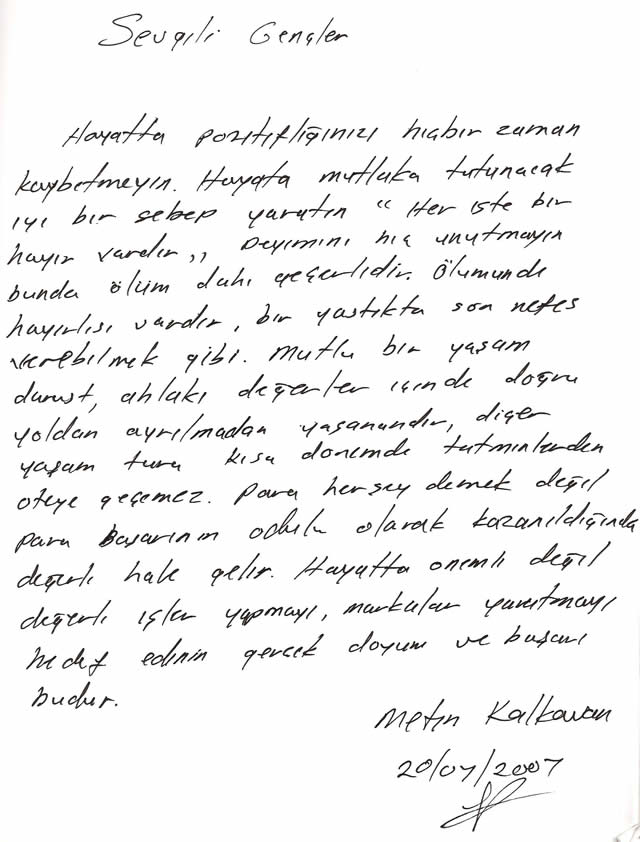 Sevgili Gençler
Hayatta pozitifliğinizi hiçbir zaman
kaybetmeyin. Hayata mutlaka tutunacak
iyi bir sebep yaratın “Her işte bir
hayır vardır,, Deyimini hiç unutmayın
bunda ölüm dahi geçerlidir. Ölümünde
hayırlısı vardır, bir yastıkta son nefes
verebilmek gibi. Mutlu bir yaşam
durust, ahlaki değerler içinde doğru
yoldan ayrılmadan yaşanandır, diğer
yaşam turu kısa donemde tatminlerden
oteye geçemez. Para herşey demek değil
para başarının odulu olarak kazanıldığında
değerli hale gelir. Hayatta onemli değil
değerli işler yapmayı, markalar yaratmayı
hedef edinin gercek doyum ve başarı
budur.
Metin Kalkavan
20/07/2007